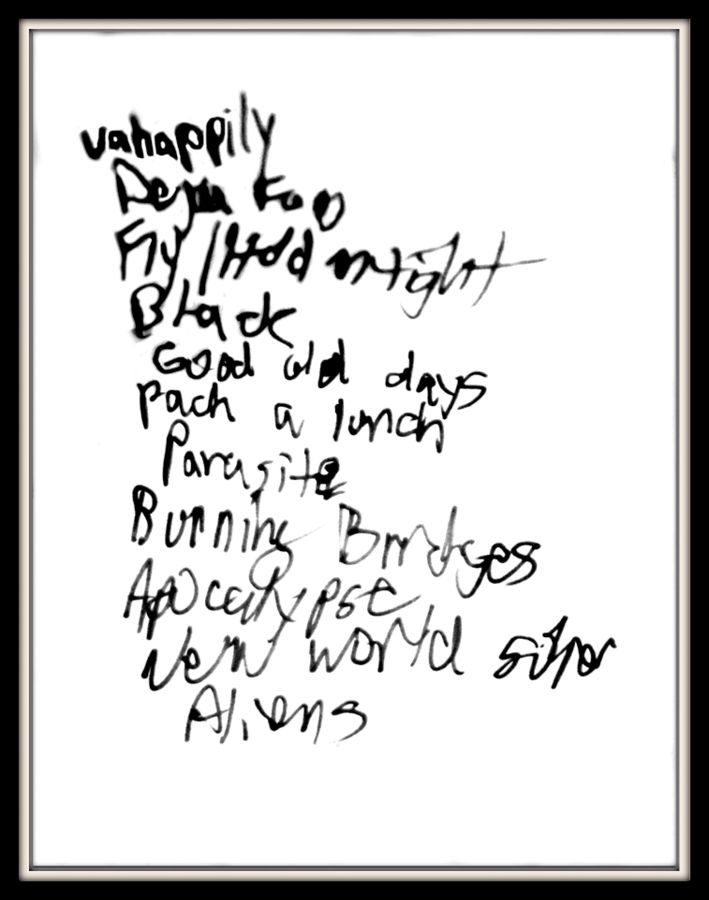 vahappily
Deja Foo
Fly / Hold m tight
Black
Good old days
Pack a lunch
Parasite
Burning Bridges
Apocalypse
New world
Aliens